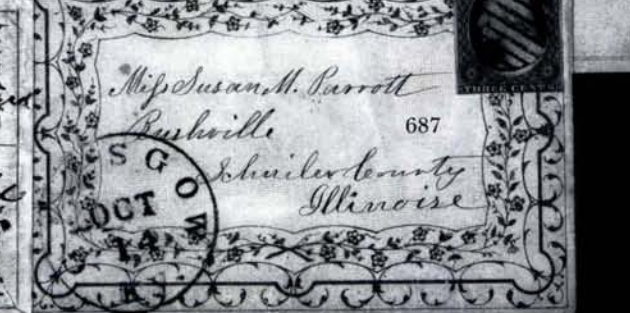 THREE CENTS
Miss Susan M. Parrott
Rushville 687
Schuiler County
Illinoise
SGOW
OCT
14